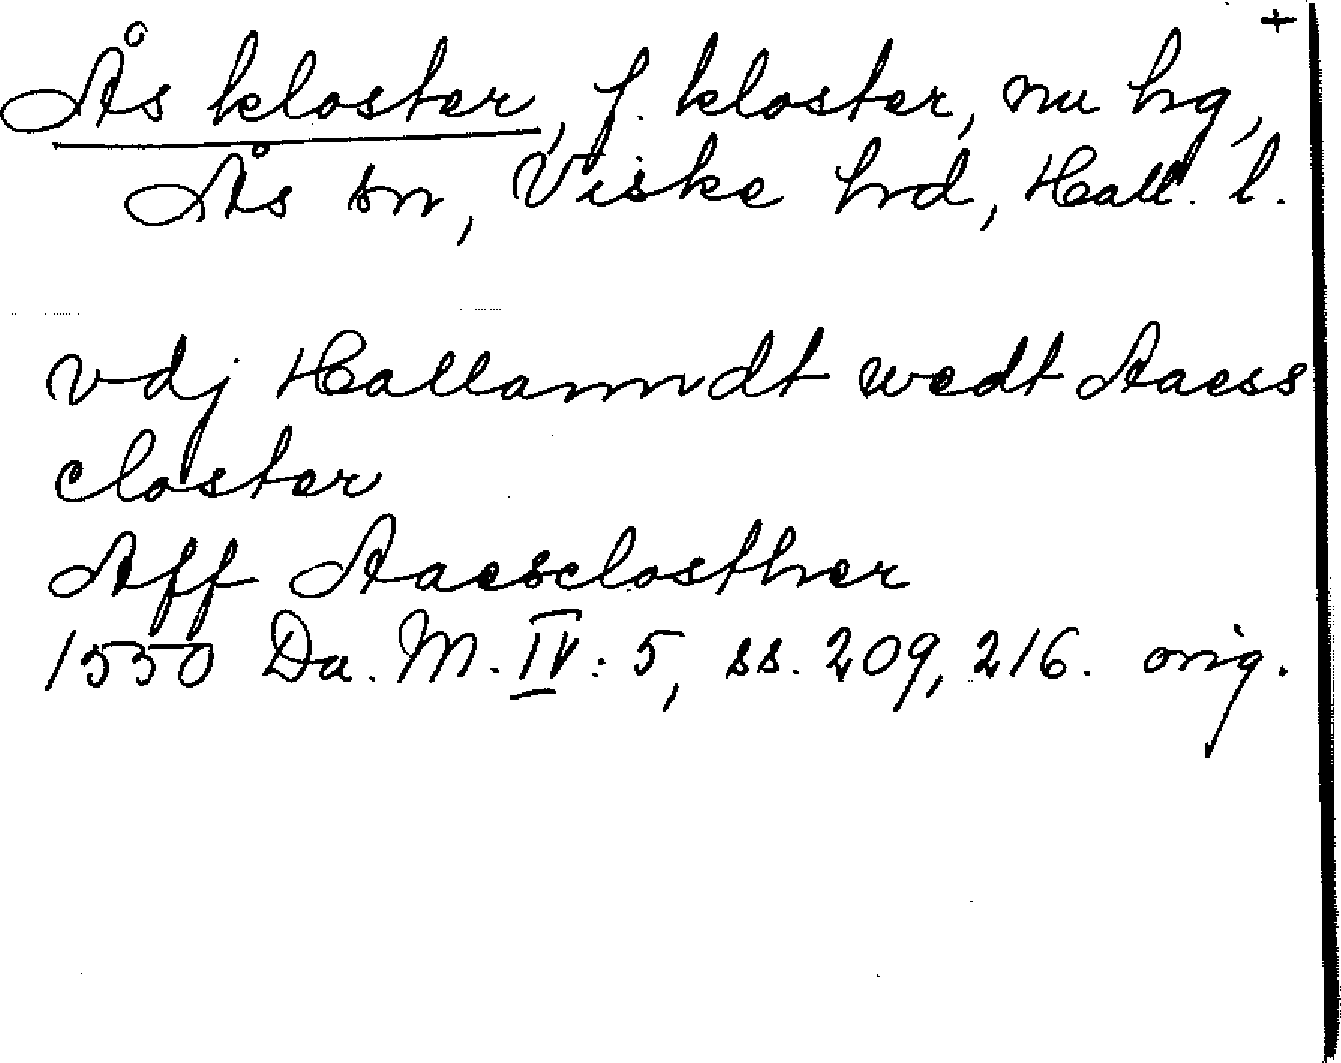 +
Ås kloster, f. kloster, nu hg,
Ås sn, Viske hd, Hall. l.
vdj Hallanndt wedt Aaess
closter
Aff Aaesclosther
1550 Da. M. IV: 5, ss. 209, 216. orig.